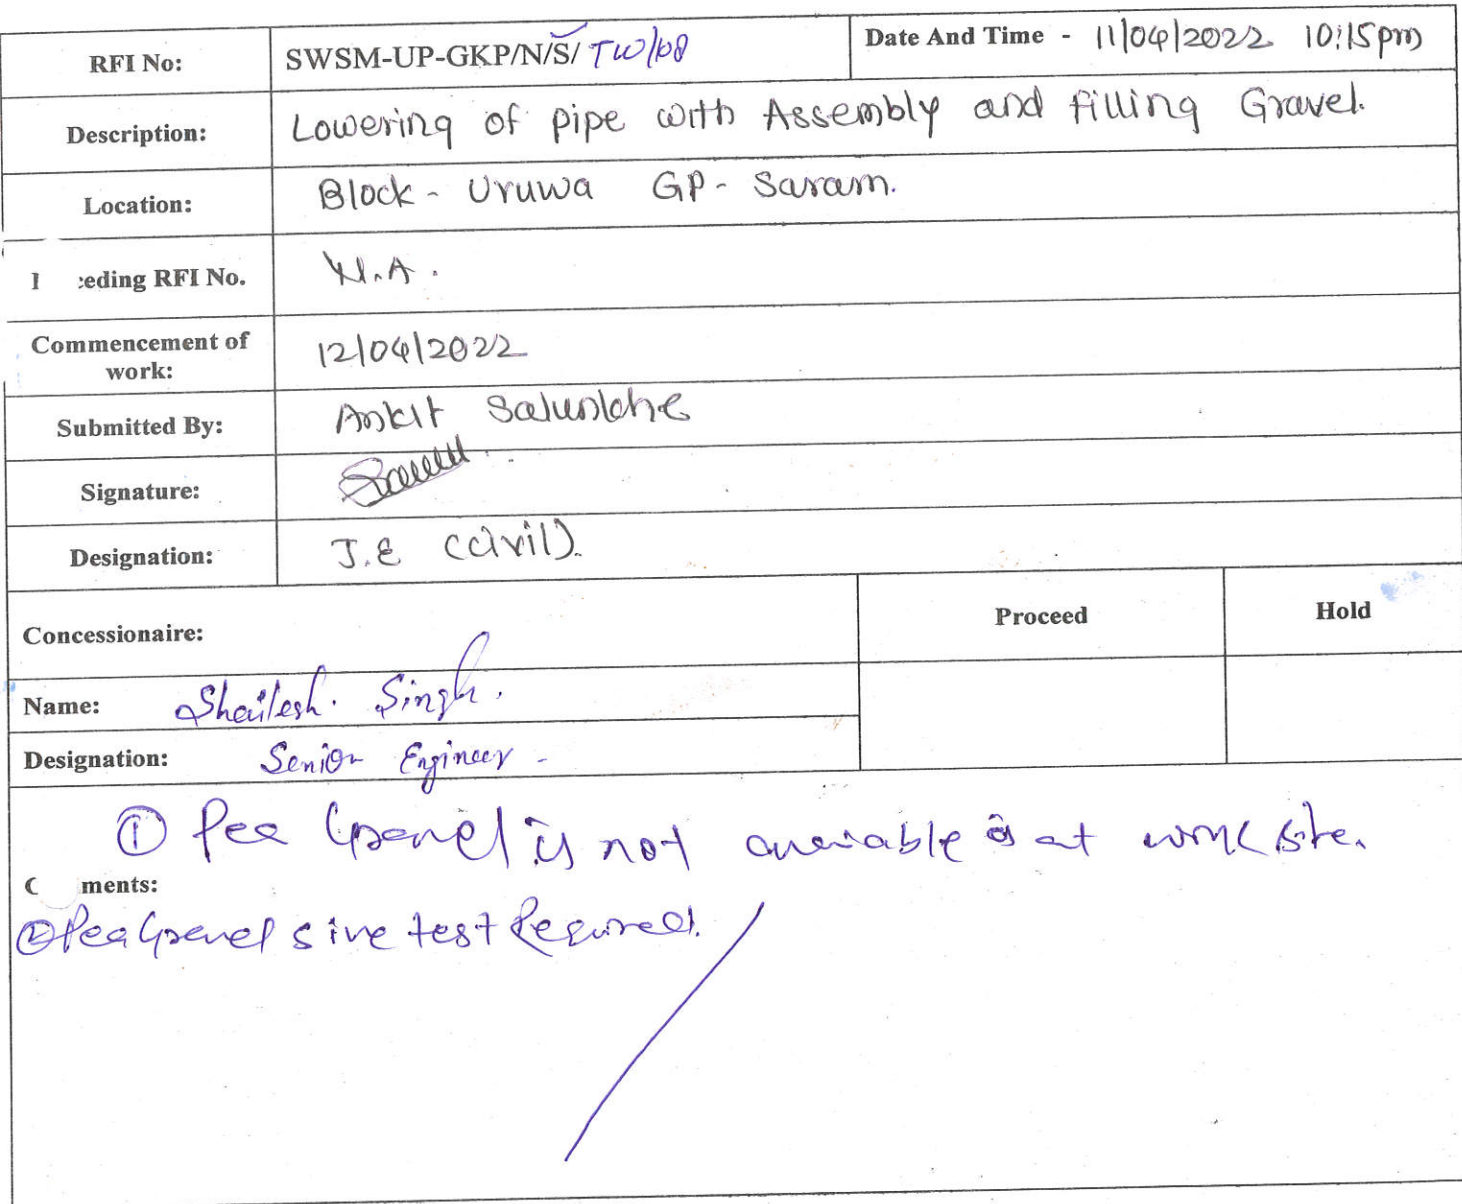 RFI No: SWSM-UP-GKP/N/S/ TW/08 Date And Time - 11/04/2022 10:15pm
Description: Lowering of pipe with Assembly and filling Gravel.
Location: Block - Uruwa GP - Saram.
eding RFI No. N.A.
Commencement of work: 12/04/2022
Submitted By: Ankit Salunkhe
Signature:
Designation: J.E (civil).
Concessionaire: Proceed Hold
Name: Shailesh. Singh.
Designation: Senior Engineer -
① Pea Gravel is not avaiable at work site.
C ments:
② Pea Gravel sive test Required.